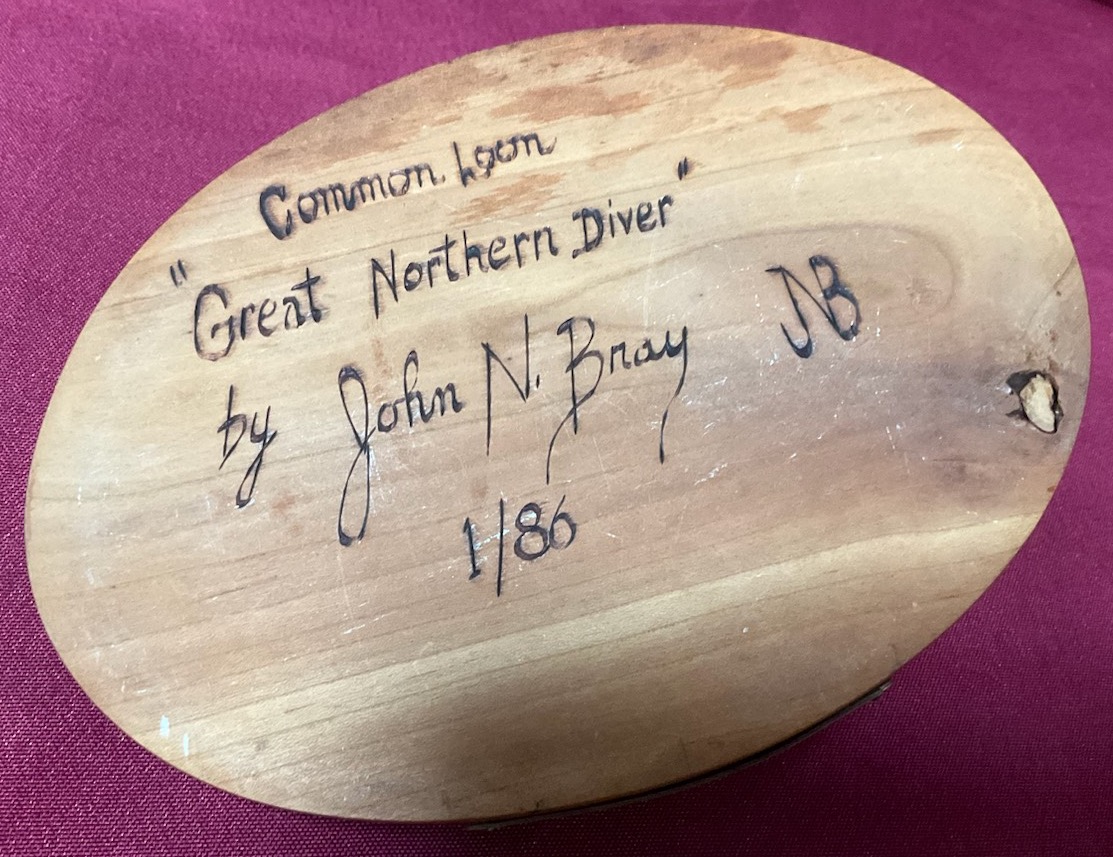 Common Loon
"Great Northern Diver"
by John N. Bray JNB
1/86